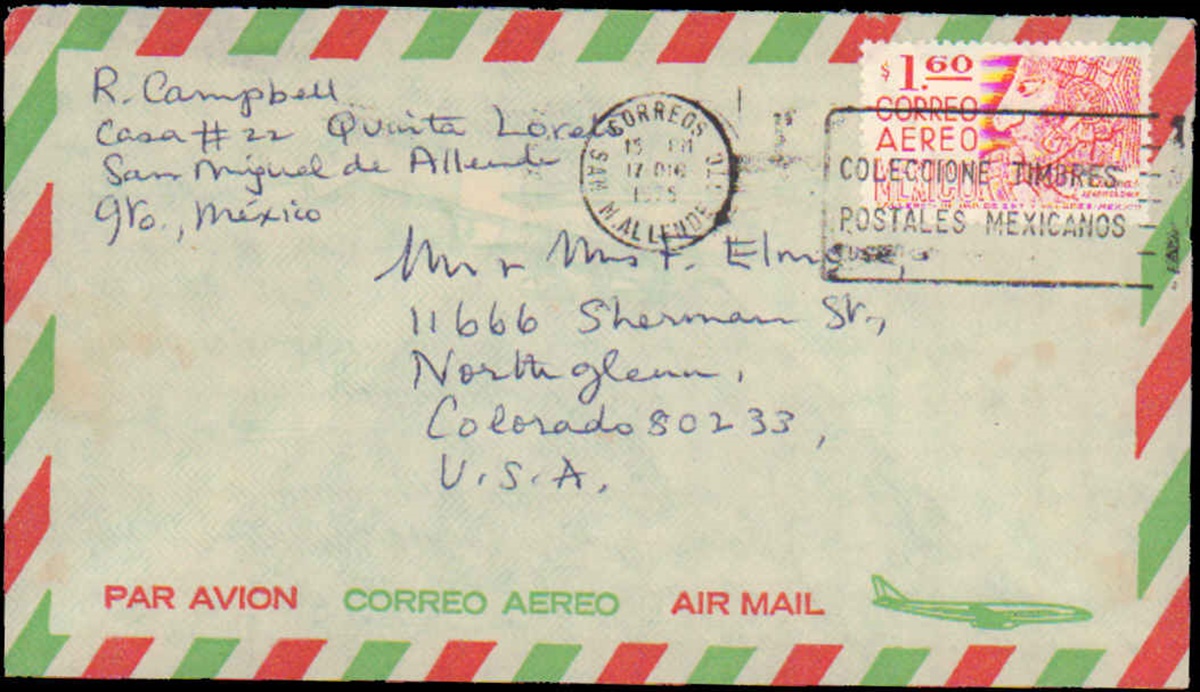 R. Campbell
Casa #22 Quinta Loreto
San Miguel de Allende
Gto., México
CORREOS
15 PM
17 DIC
SAN M. ALLENDE GTO
$1.60
CORREO
AEREO
MEXICO
COLECCIONE TIMBRES
POSTALES MEXICANOS
Mr & Mrs F.
11666 Sherman St.,
Northglenn,
Colorado 80233,
U.S.A.
PAR AVION CORREO AEREO AIR MAIL